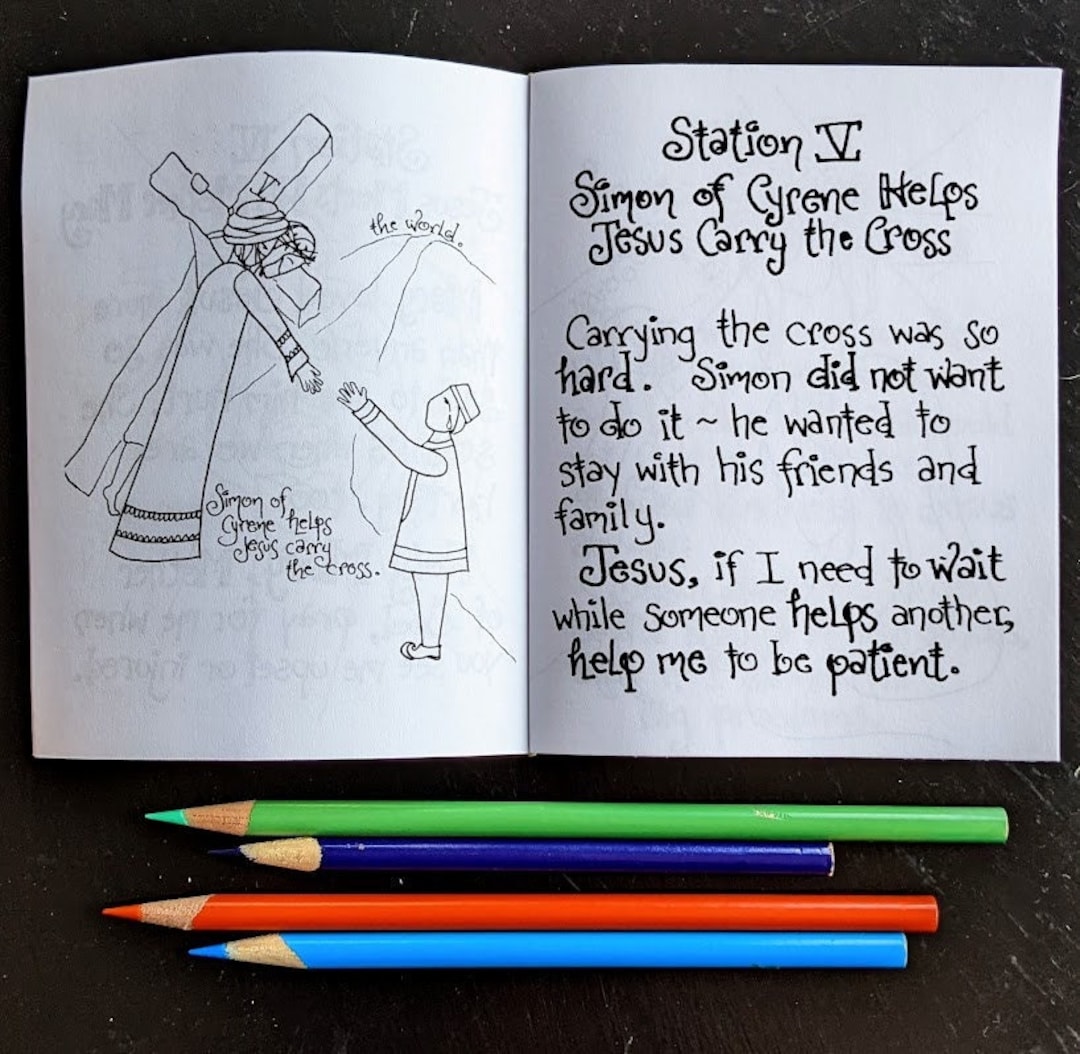 V
the world.
Simon of
Cyrene helps
Jesus carry
the cross.
Station V
Simon of Cyrene Helps
Jesus Carry the Cross
Carrying the cross was so
hard. Simon did not want
to do it ~ he wanted to
stay with his friends and
family.
Jesus, if I need to wait
while someone helps another,
help me to be patient.